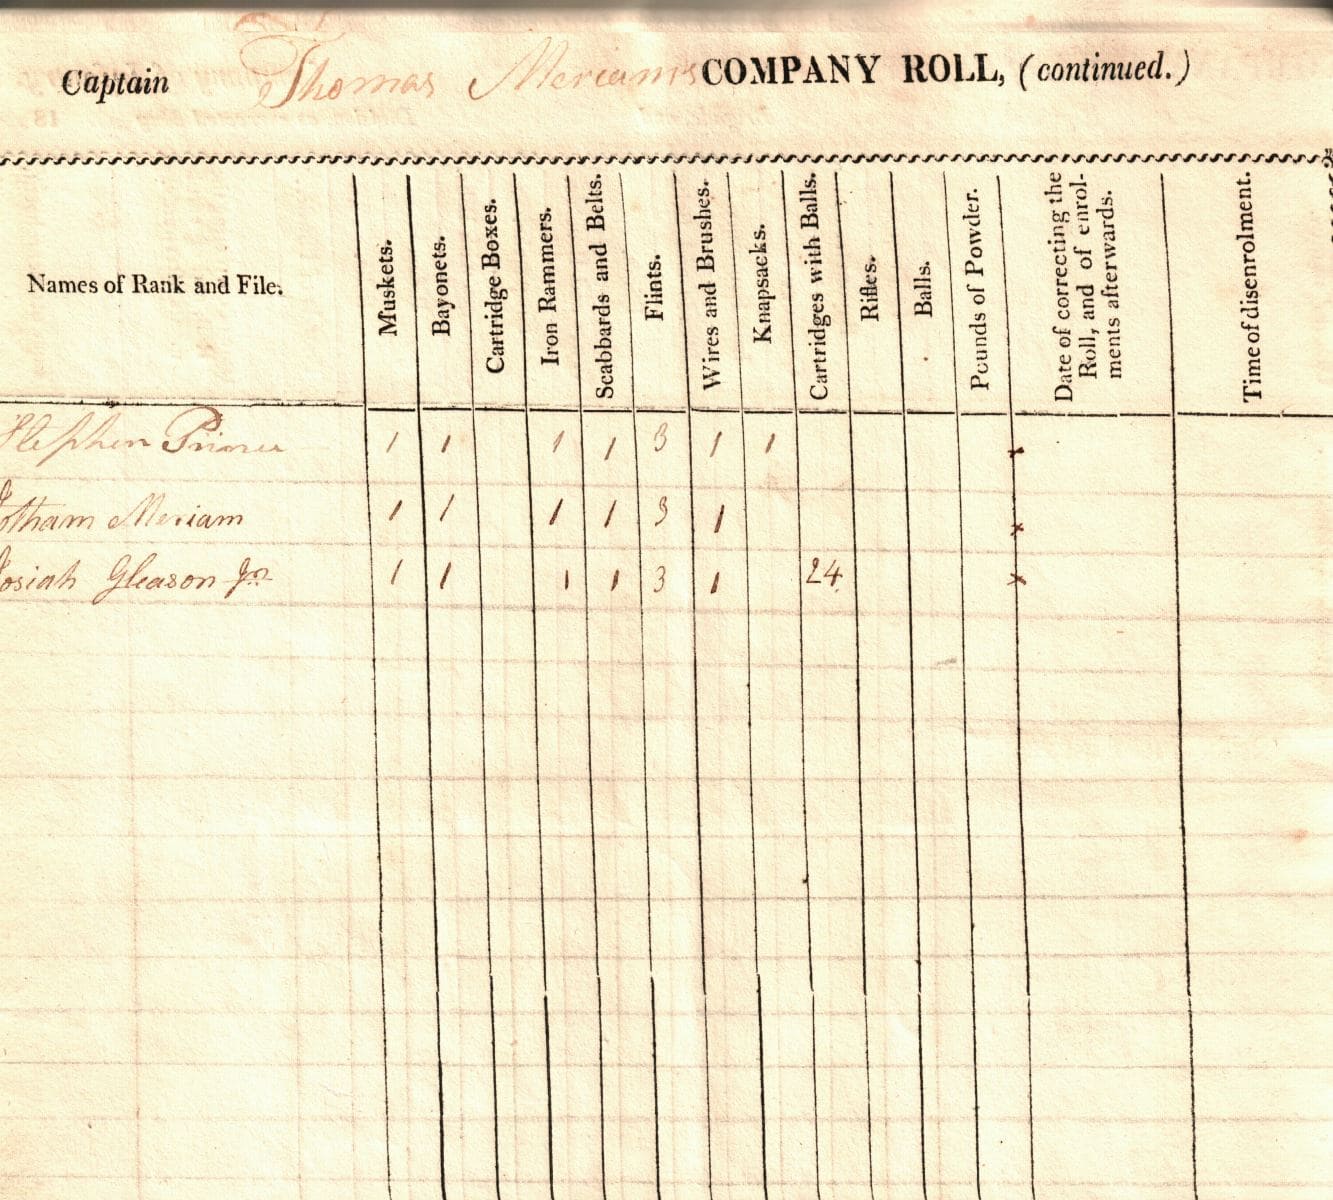 Captain Thomas Meriam's COMPANY ROLL, (continued.)
Names of Rank and File.
Muskets.
Bayonets.
Cartridge Boxes.
Iron Rammers.
Scabbards and Belts.
Flints.
Wires and Brushes.
Knapsacks.
Cartridges with Balls.
Rifles.
Balls.
Pounds of Powder.
Date of correcting the
Roll, and of enrol-
ments afterwards.
Time of disenrolment.
Stephen 1 1 1 1 3 1 1 x
Jotham Meriam 1 1 1 1 3 1 x
Josiah Gleason Jnr 1 1 1 1 3 1 24 x